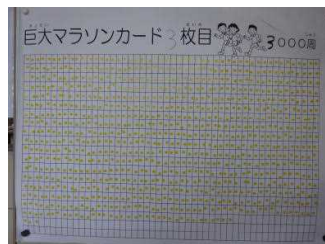 巨大マラソンカード 3 枚目
3000周